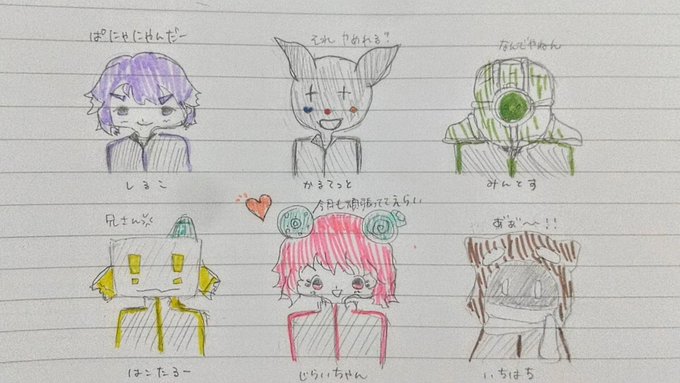 ぱにゃにゃんだー
それ やめれる?
なんでやねん
しるこ
かるてっと
みんとす
兄さんっ
今日も頑張っててえらい
あ゛あ゛〜〜!!
はこたろー
じらいちゃん
いちはち